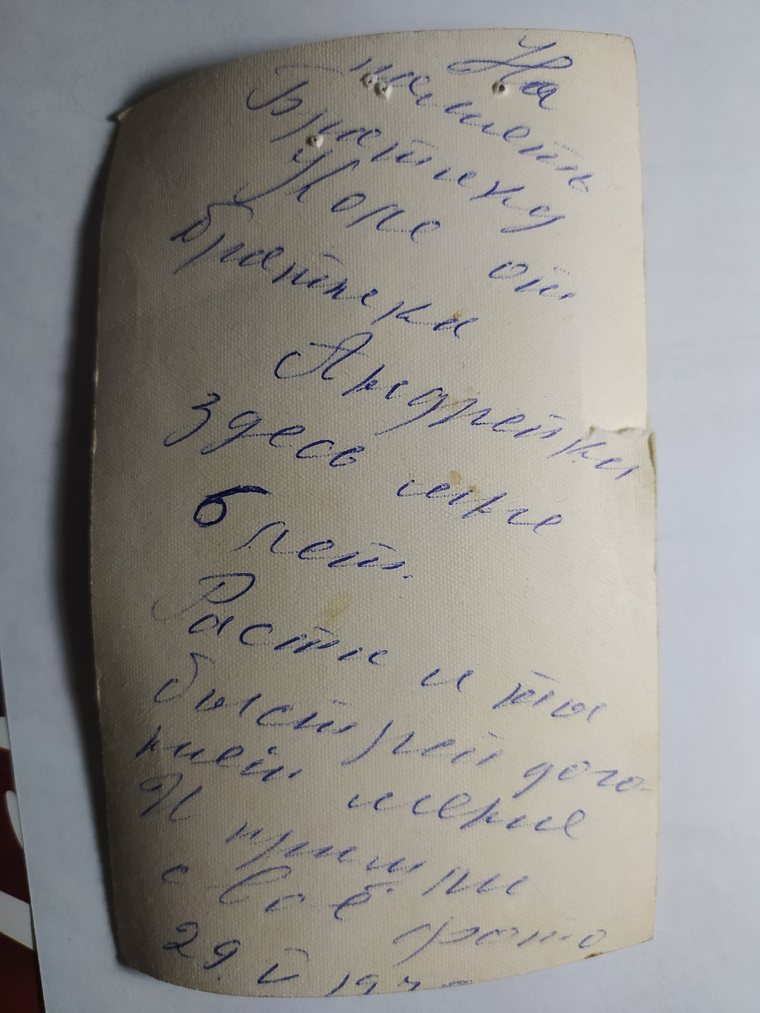 На
память
Братику
Юре от
братика
Андрейки
Здесь мне
6 лет.
Расти и ты
быстрей дого-
няй меня
И пришли
своё фото
29 V